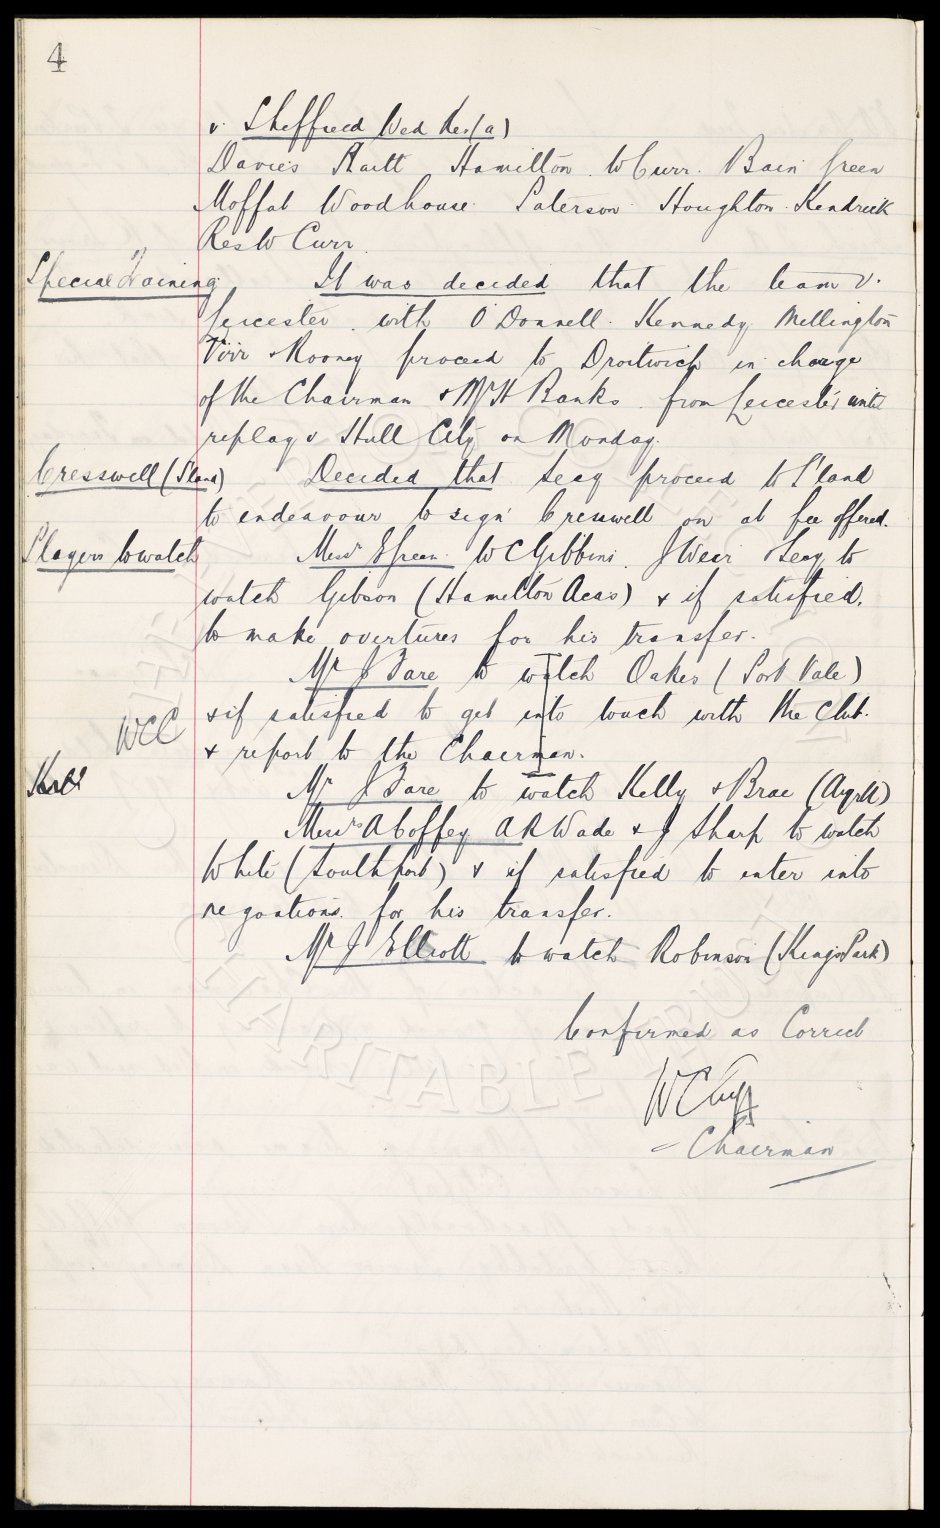 4
v. Sheffield Wed Res (a)
Davies Raitt Hamilton. W Curr. Bain Green
Moffat Woodhouse. Paterson. Houghton. Kendrick
Res W Curr.
Special Training It was decided that the team v.
Leicester. with O'Donnell. Kennedy. Mellington
Virr & Rooney proceed to Droitwich in charge
of the Chairman & Mr H Banks from Leicester until
replay v Hull City on Monday.
Cresswell (S'land) Decided that Secy proceed to S'land
to endeavour to sign Cresswell on at fee offered.
Players to watch Messrs E Green. W C Gibbins. J Wear & Secy to
watch Gibson (Hamilton Acas) & if satisfied,
to make overtures for his transfer.
Mr J Fare to watch Oakes (Port Vale)
& if satisfied to get into touch with the Club.
WCC
& report to the Chairman.
Mr J Fare to watch Kelly & Brae (Ayr U)
Messrs A Coffey A R Wade & J Sharp to watch
White (Southport) & if satisfied to enter into
negoations for his transfer.
Mr J Elliott to watch Robinson (Kings Park)
Confirmed as Correct
W C Cuff
Chairman
EVERTON COLLECTION
CHARITABLE TRUST